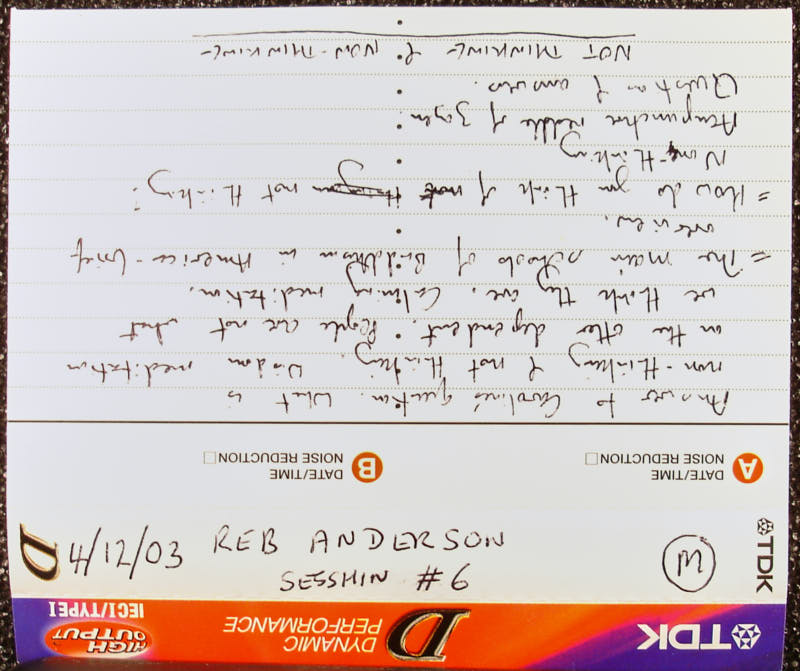 TDK D DYNAMIC PERFORMANCE HIGH OUTPUT IECI/TYPEI
4/12/03 REB ANDERSON
SESSHIN #9
M
TDK
D
A DATE/TIME
NOISE REDUCTION
B DATE/TIME
NOISE REDUCTION
Answer to Caroline's question. What is
non-thinking & not thinking. Wisdom meditation
on the other dependent. People are not what
we think they are. Calming meditation.
= The main schools of Buddhism in America - brief
overview.
= How do you think of not thinking?
Non-thinking
Acupuncture needle of Zazen.
Question & answers.
NOT THINKING & NON-THINKING